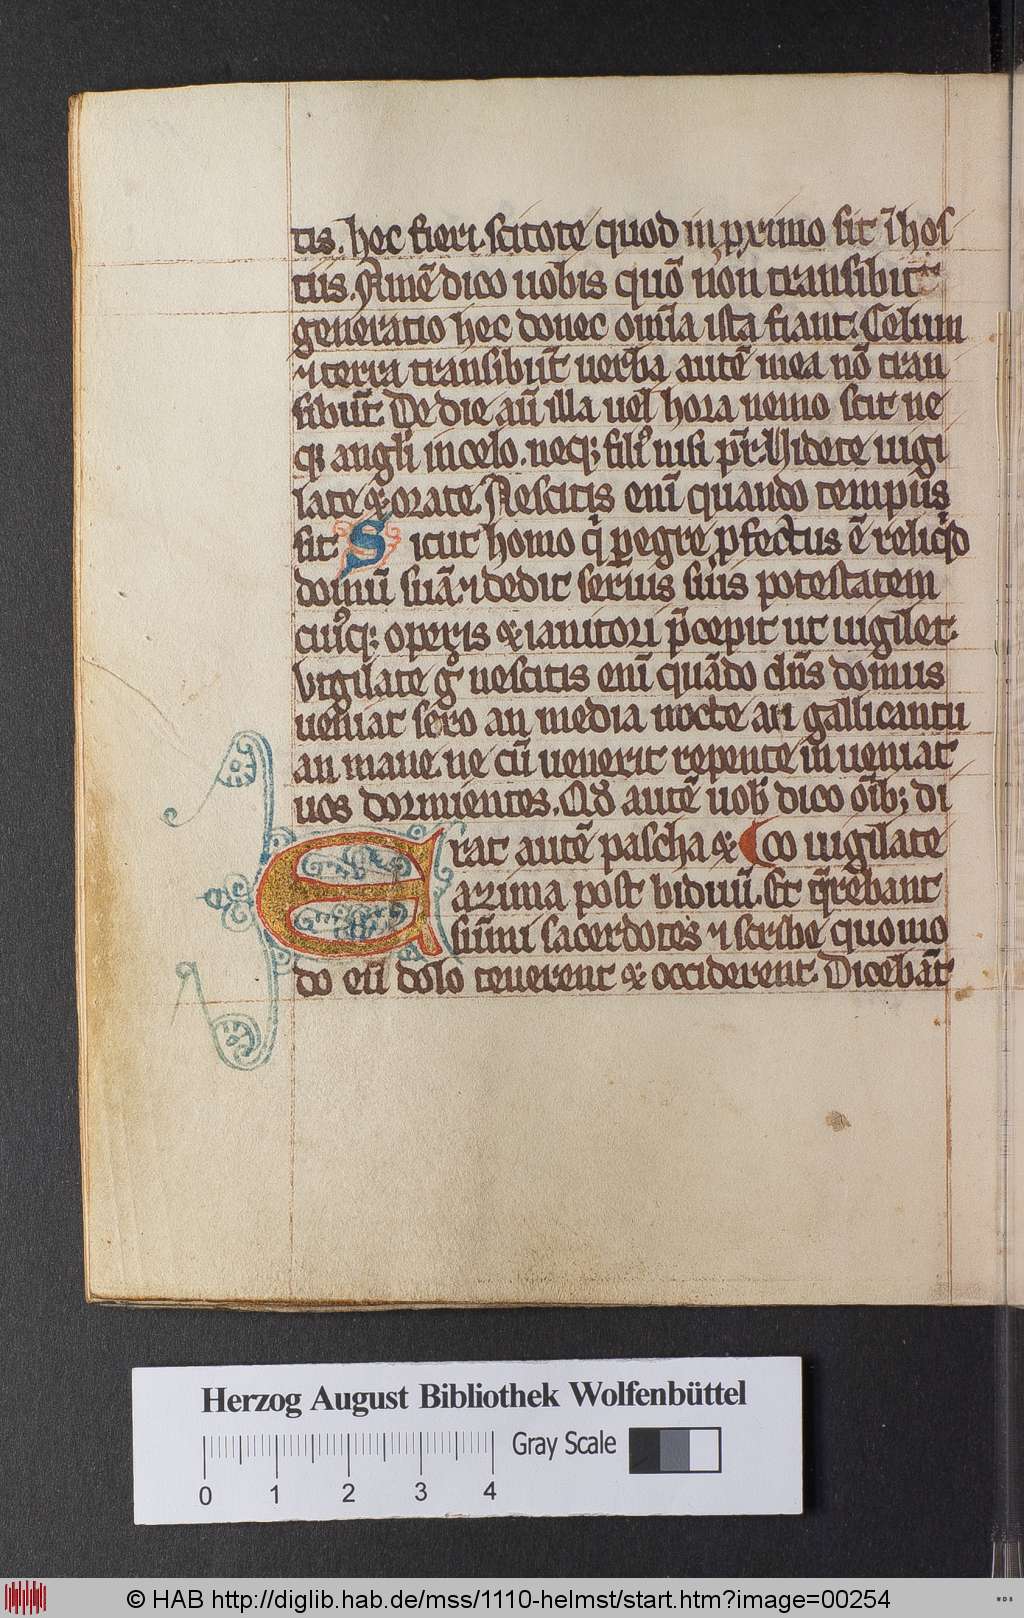 tis. hec fieri. scitote quod in pximo sit ī hos
tiis. Amē dico uobis quō non transibit
generatio hec donec om̄ia ista fiant. Celum
⁊ terra transibūt uerba autē mea nō tran
sibūt. De die aū illa uel hora nemo scit ne
qꝫ angl̄i in celo. neqꝫ filiꝰ nisi pr̄. Uidete uigi
late & orate. Nescitis enī quando tempus
sit. Sicut homo q̄ pegre pfectus ē reliqͥd
domū suā. ⁊ dedit seruis suis potestatem
cuiꝰqꝫ operis & ianitori p̄cepit ut uigilet.
Vigilate gͦ nescitis enī quādo dn̄s domus
ueniat sero an media nocte an gallicantu
an mane. ne cū uenerit repente inueniat
uos dormientes. Qd̄ autē uob dico oībꝫ di
Erat autē pascha & co uigilate
azima post biduū. Et q̄rebant
sūmi sacerdotes ⁊ scribe quomo
do eū dolo tenerent & occiderent. Dicebāt
Herzog August Bibliothek Wolfenbüttel
Gray Scale
0 1 2 3 4
© HAB http://diglib.hab.de/mss/1110-helmst/start.htm?image=00254